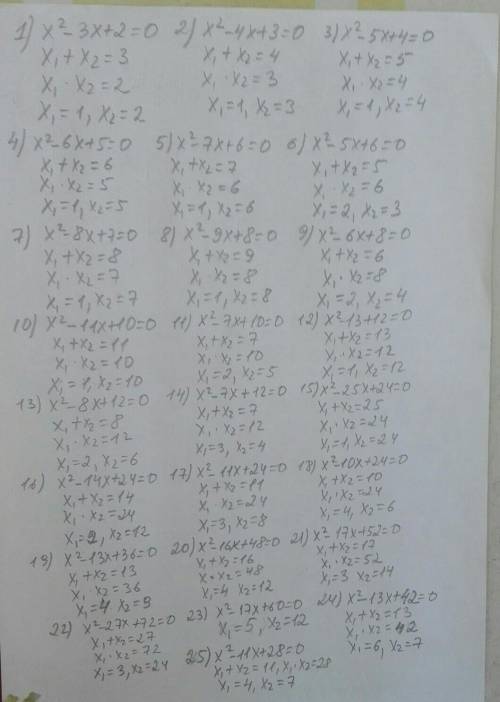 1) x²-3x+2=0
x₁+x₂=3
x₁·x₂=2
x₁=1, x₂=2
2) x²-4x+3=0
x₁+x₂=4
x₁·x₂=3
x₁=1, x₂=3
3) x²-5x+4=0
x₁+x₂=5
x₁·x₂=4
x₁=1, x₂=4
4) x²-6x+5=0
x₁+x₂=6
x₁·x₂=5
x₁=1, x₂=5
5) x²-7x+6=0
x₁+x₂=7
x₁·x₂=6
x₁=1, x₂=6
6) x²-5x+6=0
x₁+x₂=5
x₁·x₂=6
x₁=2, x₂=3
7) x²-8x+7=0
x₁+x₂=8
x₁·x₂=7
x₁=1, x₂=7
8) x²-9x+8=0
x₁+x₂=9
x₁·x₂=8
x₁=1, x₂=8
9) x²-6x+8=0
x₁+x₂=6
x₁·x₂=8
x₁=2, x₂=4
10) x²-11x+10=0
x₁+x₂=11
x₁·x₂=10
x₁=1, x₂=10
11) x²-7x+10=0
x₁+x₂=7
x₁·x₂=10
x₁=2, x₂=5
12) x²-13+12=0
x₁+x₂=13
x₁·x₂=12
x₁=1, x₂=12
13) x²-8x+12=0
x₁+x₂=8
x₁·x₂=12
x₁=2, x₂=6
14) x²-7x+12=0
x₁+x₂=7
x₁·x₂=12
x₁=3, x₂=4
15) x²-25x+24=0
x₁+x₂=25
x₁·x₂=24
x₁=1, x₂=24
16) x²-14x+24=0
x₁+x₂=14
x₁·x₂=24
x₁=2, x₂=12
17) x²-11x+24=0
x₁+x₂=11
x₁·x₂=24
x₁=3, x₂=8
18) x²-10x+24=0
x₁+x₂=10
x₁·x₂=24
x₁=4, x₂=6
19) x²-13x+36=0
x₁+x₂=13
x₁·x₂=36
x₁=4 x₂=9
20) x²-16x+48=0
x₁+x₂=16
x·x₂=48
x₁=4 x₂=12
21) x²-17x+52=0
x₁+x₂=17
x₁·x₂=52
x₁=3 x₂=14
22) x²-27x+72=0
x₁+x₂=27
x₁·x₂=72
x₁=3, x₂=24
23) x²-17x+60=0
x₁=5, x₂=12
24) x²-13x+42=0
x₁+x₂=13
x₁·x₂=42
x₁=6, x₂=7
25) x²-11x+28=0
x₁+x₂=11, x₁·x₂=28
x₁=4, x₂=7